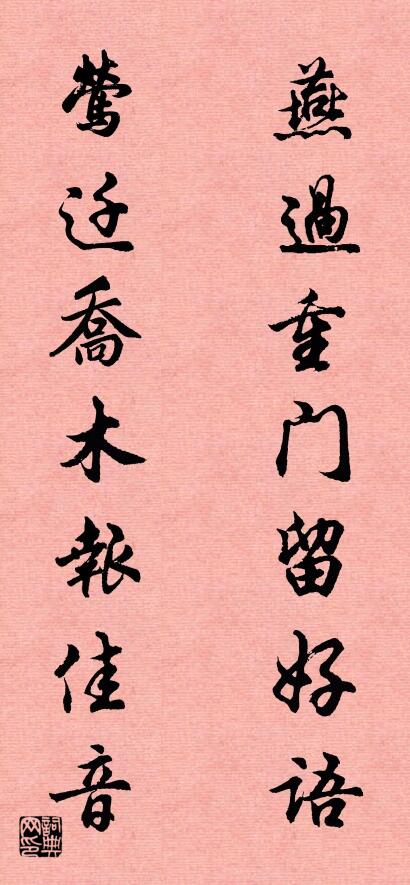 燕過重门留好語
莺迁喬木報佳音
詞典网印